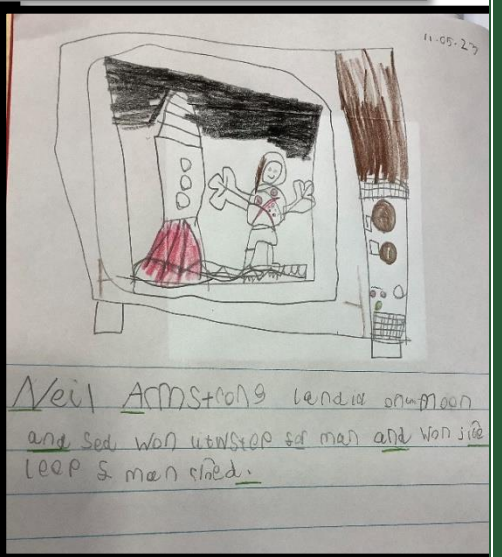 11-05-23
Neil Armstrong landid on moon
and sed won step for man and won
leep man cined.